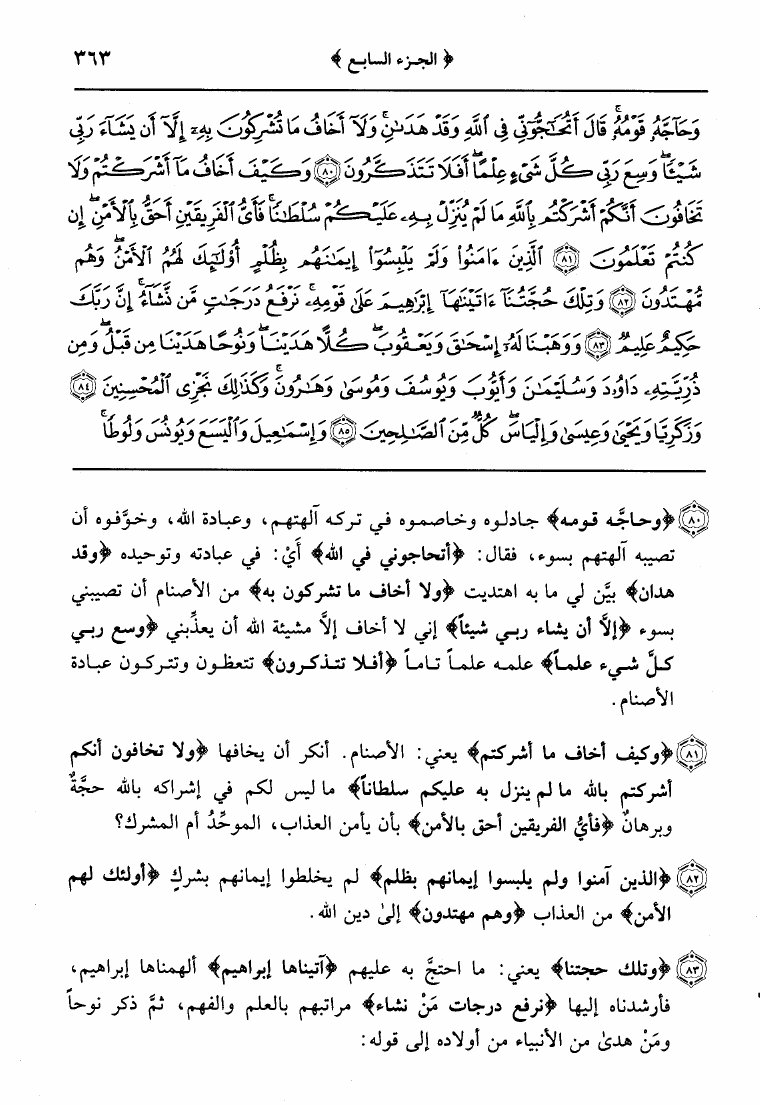 ﴿ الجزء السابع ﴾ ٣٦٣
وَحَآجَّهُۥ قَوْمُهُۥ ۚ قَالَ أَتُحَـٰٓجُّوٓنِّى فِى ٱللَّهِ وَقَدْ هَدَىٰنِ ۚ وَلَآ أَخَافُ مَا تُشْرِكُونَ بِهِۦٓ إِلَّآ أَن يَشَآءَ رَبِّى
شَيْـًٔا ۗ وَسِعَ رَبِّى كُلَّ شَىْءٍ عِلْمًا ۗ أَفَلَا تَتَذَكَّرُونَ ٨٠ وَكَيْفَ أَخَافُ مَآ أَشْرَكْتُمْ وَلَا
تَخَافُونَ أَنَّكُمْ أَشْرَكْتُم بِٱللَّهِ مَا لَمْ يُنَزِّلْ بِهِۦ عَلَيْكُمْ سُلْطَـٰنًا ۚ فَأَىُّ ٱلْفَرِيقَيْنِ أَحَقُّ بِٱلْأَمْنِ ۖ إِن
كُنتُمْ تَعْلَمُونَ ٨١ ٱلَّذِينَ ءَامَنُوا۟ وَلَمْ يَلْبِسُوٓا۟ إِيمَـٰنَهُم بِظُلْمٍ أُو۟لَـٰٓئِكَ لَهُمُ ٱلْأَمْنُ ۖ وَهُم
مُّهْتَدُونَ ٨٢ وَتِلْكَ حُجَّتُنَآ ءَاتَيْنَـٰهَآ إِبْرَٰهِيمَ عَلَىٰ قَوْمِهِۦ ۚ نَرْفَعُ دَرَجَـٰتٍ مَّن نَّشَآءُ ۗ إِنَّ رَبَّكَ
حَكِيمٌ عَلِيمٌ ٨٣ وَوَهَبْنَا لَهُۥٓ إِسْحَـٰقَ وَيَعْقُوبَ ۚ كُلًّا هَدَيْنَا ۚ وَنُوحًا هَدَيْنَا مِن قَبْلُ ۖ وَمِن
ذُرِّيَّتِهِۦ دَاوُۥدَ وَسُلَيْمَـٰنَ وَأَيُّوبَ وَيُوسُفَ وَمُوسَىٰ وَهَـٰرُونَ ۚ وَكَذَٰلِكَ نَجْزِى ٱلْمُحْسِنِينَ ٨٤
وَزَكَرِيَّا وَيَحْيَىٰ وَعِيسَىٰ وَإِلْيَاسَ ۖ كُلٌّ مِّنَ ٱلصَّـٰلِحِينَ ٨٥ وَإِسْمَـٰعِيلَ وَٱلْيَسَعَ وَيُونُسَ وَلُوطًا ۚ
٨٠ ﴿وحاجَّه قومه﴾ جادلوه وخاصموه في تركه آلهتهم، وعبادة الله، وخوَّفوه أن
تصيبه آلهتهم بسوء، فقال: ﴿أتحاجوني في الله﴾ أَيْ: في عبادته وتوحيده ﴿وقد
هدان﴾ بيَّن لي ما به اهتديت ﴿ولا أخاف ما تشركون به﴾ من الأصنام أن تصيبني
بسوء ﴿إلاَّ أن يشاء ربي شيئاً﴾ إني لا أخاف إلاَّ مشيئة الله أن يعذِّبني ﴿وسع ربي
كلَّ شيء علماً﴾ علمه علماً تاماً ﴿أفلا تتذكرون﴾ تتعظون وتتركون عبادة
الأصنام.
٨١ ﴿وكيف أخاف ما أشركتم﴾ يعني: الأصنام. أنكر أن يخافها ﴿ولا تخافون أنكم
أشركتم بالله ما لم ينزل به عليكم سلطاناً﴾ ما ليس لكم في إشراكه بالله حجَّةٌ
وبرهانٌ ﴿فأيُّ الفريقين أحق بالأمن﴾ بأن يأمن العذاب، الموحِّدُ أم المشرك؟
٨٢ ﴿الذين آمنوا ولم يلبسوا إيمانهم بظلم﴾ لم يخلطوا إيمانهم بشركٍ ﴿أولئك لهم
الأمن﴾ من العذاب ﴿وهم مهتدون﴾ إلىٰ دين الله.
٨٣ ﴿وتلك حجتنا﴾ يعني: ما احتجَّ به عليهم ﴿آتيناها إبراهيم﴾ ألهمناها إبراهيم،
فأرشدناه إليها ﴿نرفع درجات مَنْ نشاء﴾ مراتبهم بالعلم والفهم، ثمَّ ذكر نوحاً
ومَنْ هدىٰ من الأنبياء من أولاده إلى قوله: